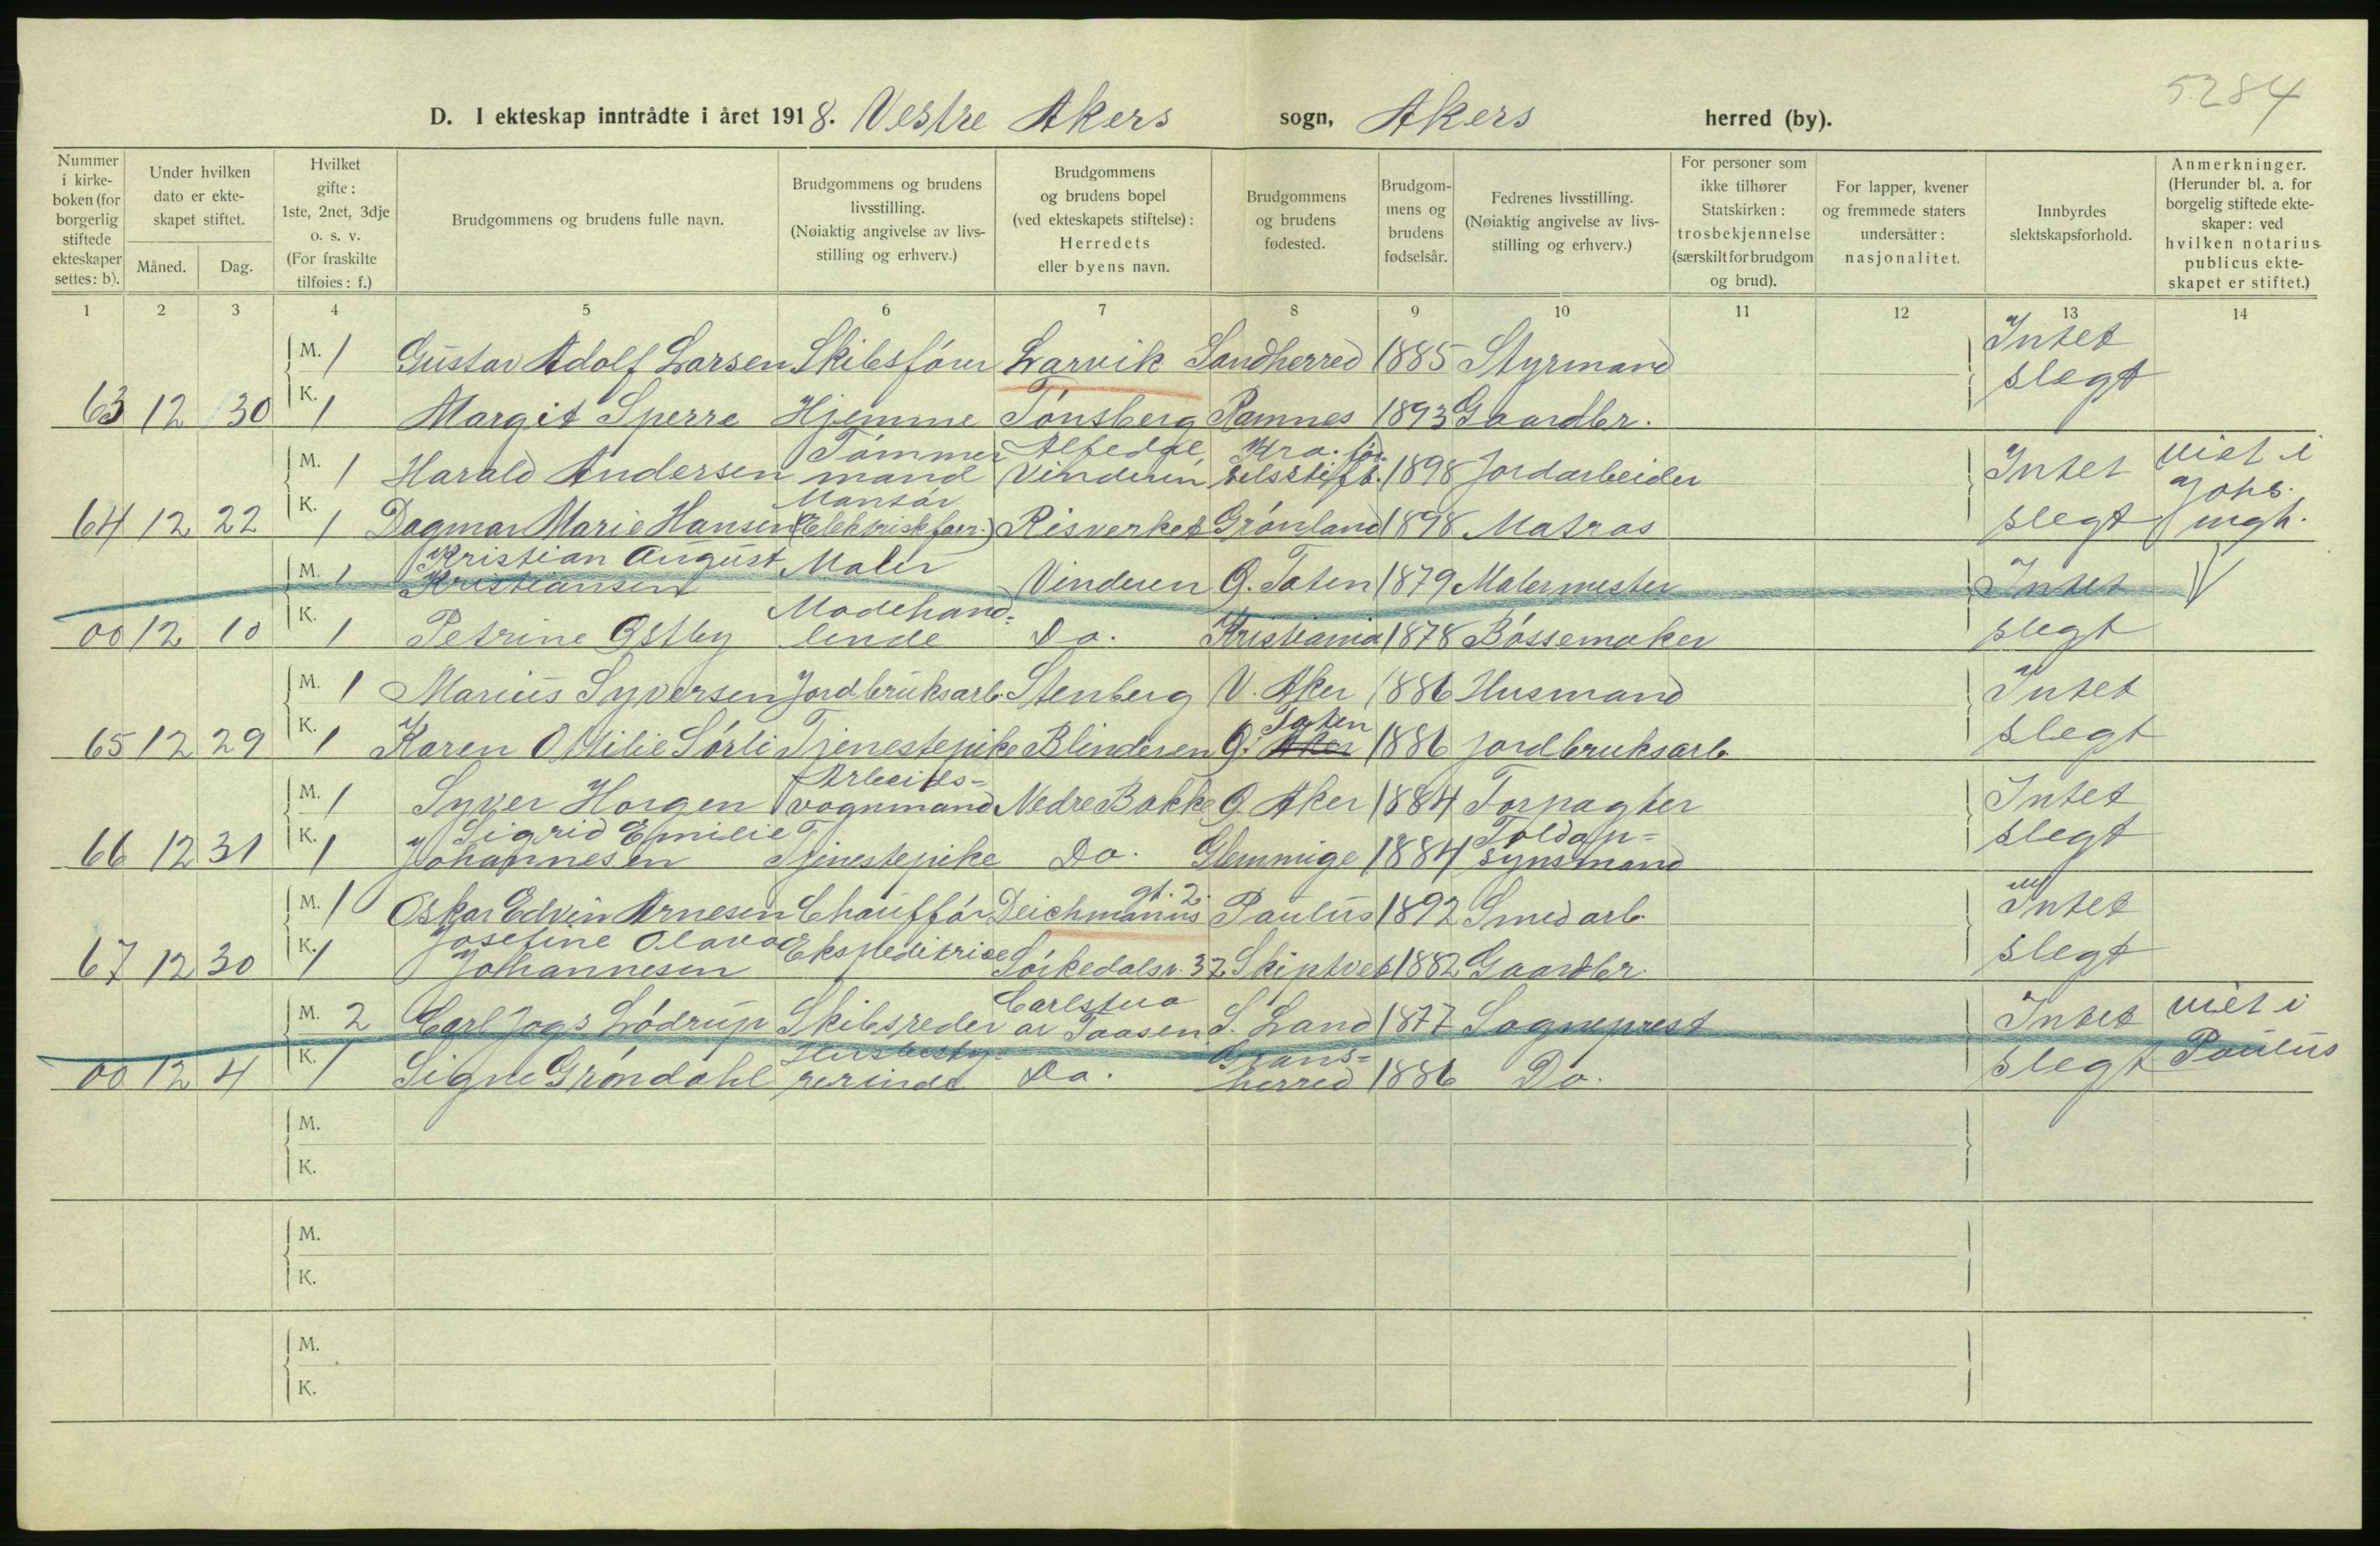 5284
D. I ekteskap inntrådte i året 1918. Vestre Akers sogn, Akers herred (by).
Nummer i kirke-boken (for borgerlig stiftede ekteskaper settes: b).
Under hvilken dato er ekte-skapet stiftet.
Måned. Dag.
Hvilket gifte: 1ste, 2net, 3dje o. s. v. (For fraskilte tilføies: f.)
Brudgommens og brudens fulle navn.
Brudgommens og brudens livsstilling. (Nøiaktig angivelse av livs-stilling og erhverv.)
Brudgommens og brudens bopel (ved ekteskapets stiftelse): Herredets eller byens navn.
Brudgommens og brudens fødested.
Brudgom-mens og brudens fødselsår.
Fedrenes livsstilling. (Nøiaktig angivelse av livs-stilling og erhverv.)
For personer som ikke tilhører Statskirken: trosbekjennelse (særskilt for brudgom og brud).
For lapper, kvener og fremmede staters undersåtter: nasjonalitet.
Innbyrdes slektskapsforhold.
Anmerkninger. (Herunder bl. a. for borgelig stiftede ekte-skaper: ved hvilken notarius publicus ekte-skapet er stiftet.)
1 2 3 4 5 6 7 8 9 10 11 12 13 14
M. 1 Gustav Adolf Larsen Skibsfører Larvik Sandherred 1885 Styrmand Intet
63 12 30 K. 1 Margit Sperre Hjemme Tønsberg Ramnes 1893 Gaardbr. slegt
M. 1 Harald Andersen Tømmermand Vinderen Kra. fødselsstift. 1898 Jordarbeider Intet viet i
64 12 22 K. 1 Dagmar Marie Hansen Montør Risverket Grønland 1898 Matros slegt Johs. mgh.
M. 1 Kristian August Kristiansen Maler Vinderen Ø. Toten 1879 Malermester Intet V
00 12 10 K. 1 Petrine Østby Modehand=lende Do. Kristiania 1878 Bøssemaker slegt
M. 1 Marius Syversen Jordbruksarb. Stenberg V. Aker 1886 Husmand Intet
65 12 29 K. 1 Karen Ottilie Sørli Tjenestepike Blinderen Ø. Aker Toten 1886 Jordbruksarb. slegt
M. 1 Syver Horgen Arbeids=vognmand Nedre Bakke Ø. Aker 1884 Forpagter Intet
66 12 31 K. 1 Sigrid Emilie Johannesen Tjenestepike Do. Glemmige 1884 Toldop=synsmand slegt
M. 1 Oskar Edvin Arnesen Chauffør Deichmanns gt. 2. Paulus 1892 Smedarb. Intet
67 12 30 K. 1 Josefine Olava Johannesen Ekspeditrise Sørkedalsv. 37 Skiptvet 1882 Gaardbr. slegt
M. 2 Carl Jogs Lødrup Skibsreder Carlstua av Taasen S. Land 1877 Sogneprest Intet viet i
00 12 4 K. 1 Signe Grøndahl Husbesty=rerinde Do. Grans=herred 1886 Do. slegt Paulus
M.
K.
M.
K.
M.
K.